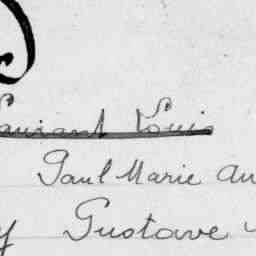 Laurant Louis
Paul Marie Au
y Gustave